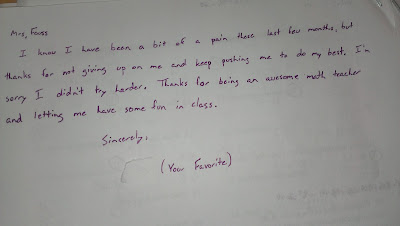 Mrs, Fouss
I know I have been a bit of a pain these last few months, but
thanks for not giving up on me and keep pushing me to do my best. I'm
sorry I didn't try harder. Thanks for being an awesome math teacher
and letting me have some fun in class.
Sincerely,
(Your Favorite)